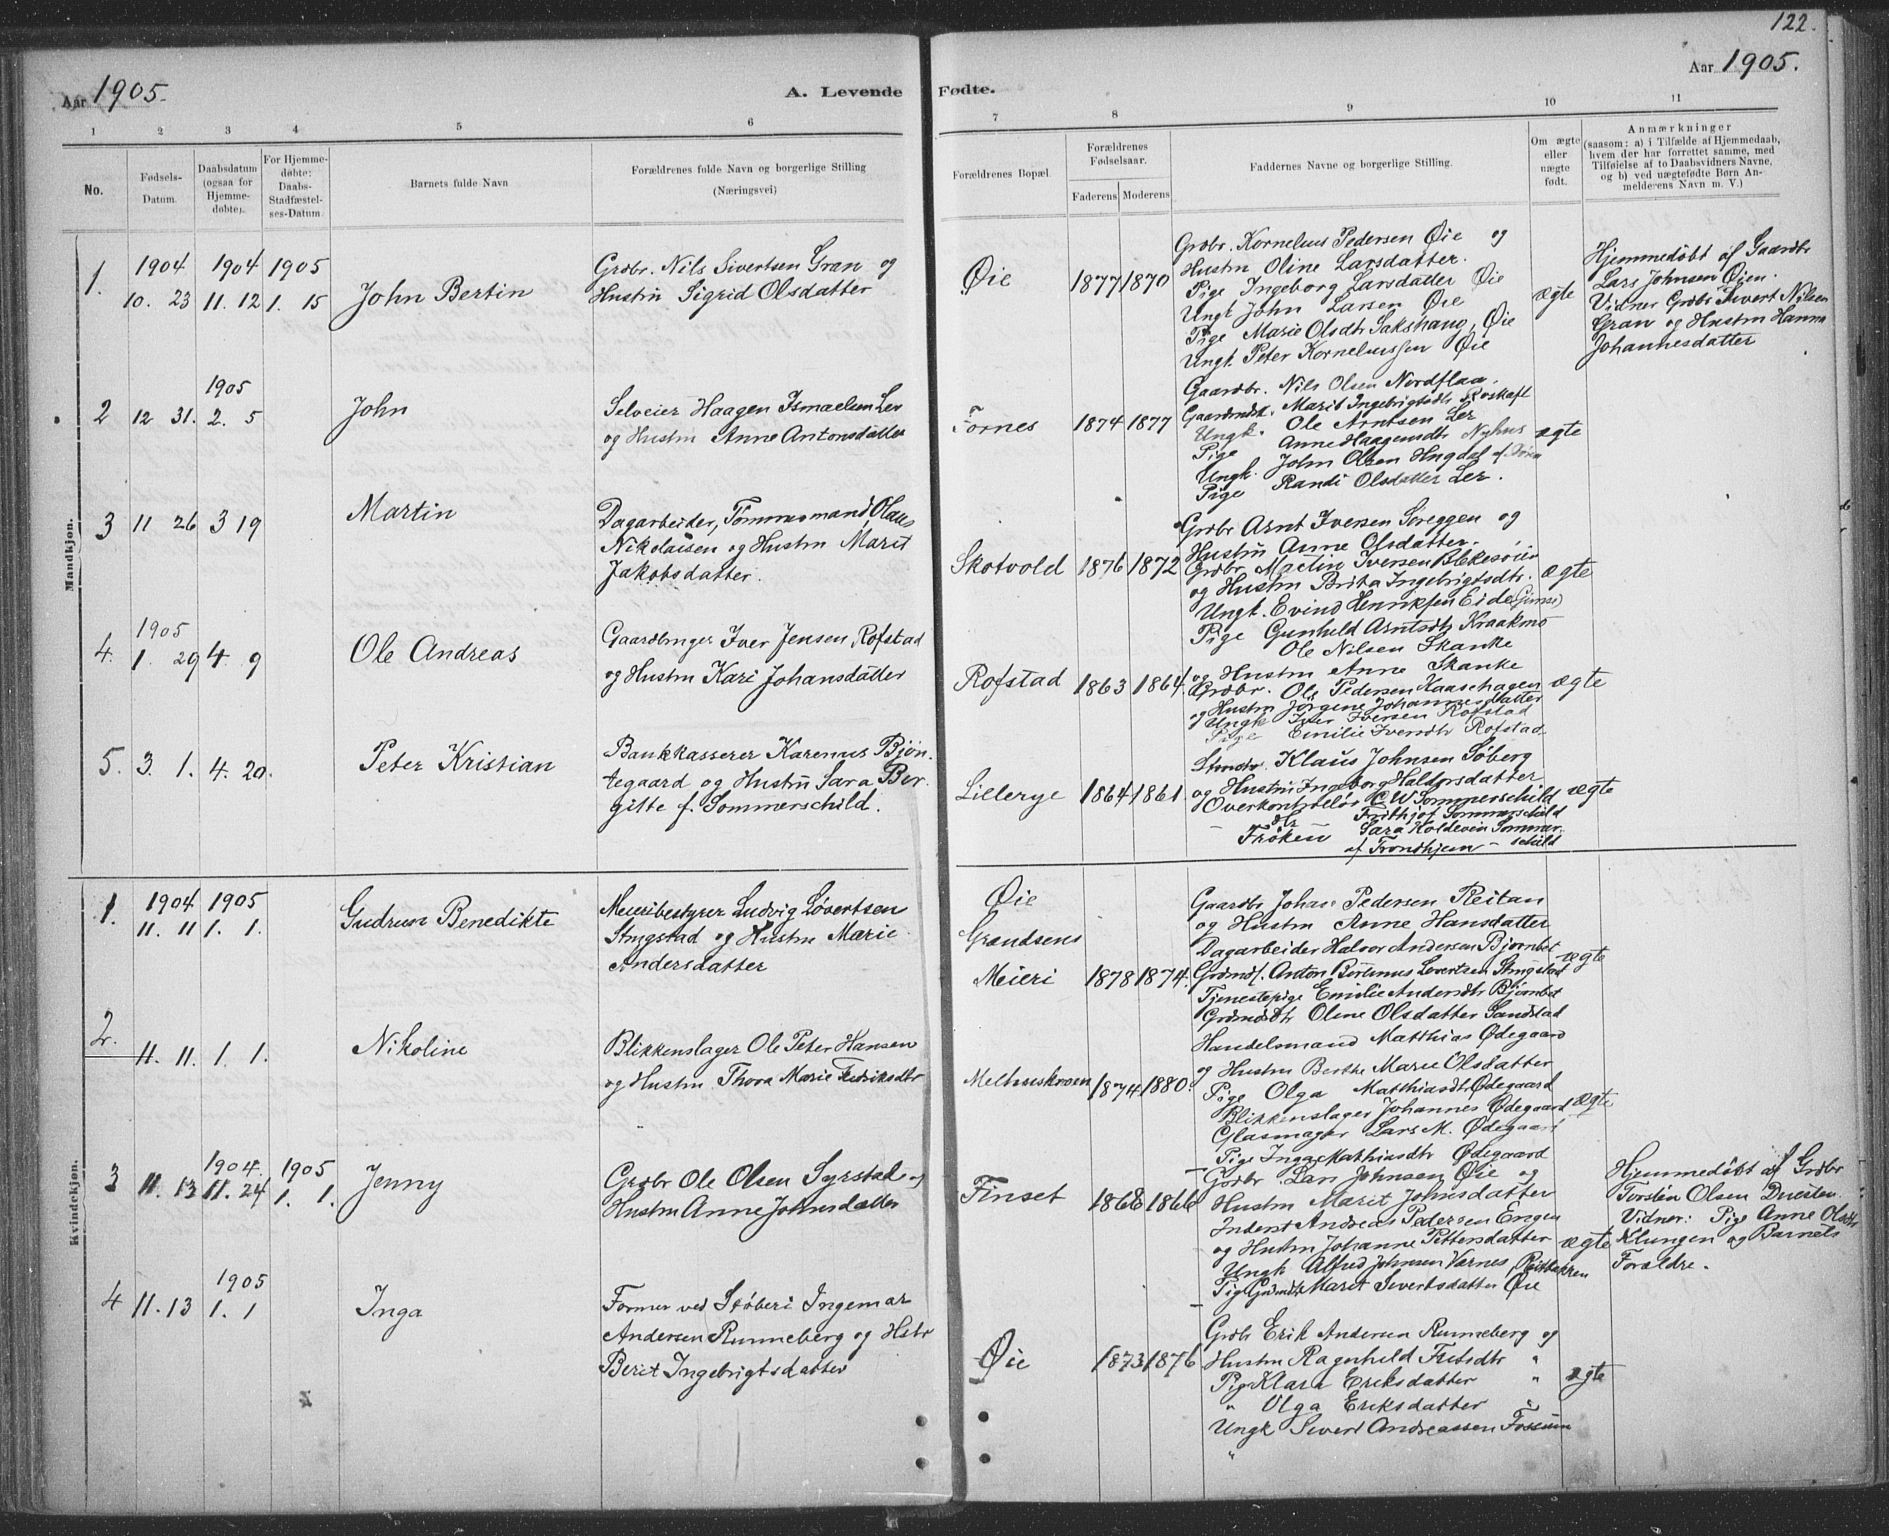 122.
Aar 1905.
A. Levende Fødte.
Aar 1905.
1 2 3 4 5 6 7 8 9 10 11
No.
Fødsels-
Datum.
Daabsdatum
(ogsaa for
Hjemme-
døbte).
For Hjemme-
døbte:
Daabs-
Stadfæstel-
ses-Datum.
Barnets fulde Navn
Forældrenes fulde Navn og borgerlige Stilling
(Næringsvei)
Forældrenes Bopæl.
Forældrenes
Fødselsaar.
Faderens
Moderens
Faddernes Navne og borgerlige Stilling.
Om ægte
eller
uægte
født.
Anmærkninger
(saasom: a) i Tilfælde af Hjemmedaab,
hvem der har forrettet samme, med
Tilføielse af to Daabsvidners Navne,
og b) ved uægtefødte Børn An-
melderens Navn m. V.)
Mandkjøn.
1.
1904
10. 23
1904
11. 12
1905
1. 15
John Bertin
Grdbr. Nils Sivertsen Gran og
Hustru Sigrid Olsdatter
Øie
1877
1870
Grdbr. Kornelius Pedersen Øie og
Hustru Oline Larsdatter.
Pige Ingeborg Larsdatter Øie
Ungk. John Larsen Øie
Pige Marie Olsdtr Sakshaug, Øie
Ungk. Peter Korneliussen Øie
ægte
Hjemmedøbt af Gaardbr
Lars Johnsen Øien.
Vidner Grdbr Sivert Nilsen
Gran og Hustru Hanna
Johannesdatter
2
12 31.
1905
2. 5
John
Selveier Haagen Ismaelsen Ler
og Hustru Anne Antonsdatter
Fornes
1874
1877
Gaardbr. Nils Olsen Nordflaa.
Marit Ingebrigtsdtr Roskaft
Ungk. Ole Arntsen Ler
Pige Anne Haagensdtr Nyhus
Ungk. John Olsen Hugdal
Pige Randi Olsdatter Ler.
ægte
3
11 26
3 19
Martin
Dagarbeider, Tømmermand Olaus
Nikolaisen og Hustru Marit
Jakobsdatter.
Skotvold
1876
1872
Grdbr Arnt Iversen Søreggen og
Hustru Anne Olsdatter.
Grdbr. Martin Iversen
og Hustru Brita Ingebrigtsdtr.
Ungk. Evind Henriksen Eide (Gimse)
Pige Gunhild Arntsdtr Kraakmo
ægte
4.
1905
1. 29
4. 9
Ole Andreas
Gaardbruger Iver Jensen Rofstad
og Hustru Kari Johansdatter
Rofstad
1863
1864.
Ole Nilsen Skanke
og Hustru Anne Skanke
Grdbr. Ole Pedersen Kaasehagen
og Hustru Jørgine Johannesdatter
Ungk Iver Iversen Rofstad
Pige Emilie Iversdtr Rofstad
ægte
5.
3. 1.
4. 20.
Peter Kristian
Bankkasserer Karenus Bjøn-
tegaard og Hustru Sara Ber-
gitte f. Sommerschild.
Lillerye
1864
1861
Klaus Johnsen Søberg
og Hustru Ingeborg Haldorsdatter
Overkontrolør C W Sommerschild
Fridthjof Sommerschild
Frøken Sara Holdevin Sommer-
af Trondhjem - schild
ægte
Kvindekjøn.
1.
1904
11. 11
1905
1. 1.
Gudrun Benedikte
Meieribestyrer Ludvig Løvertsen
Stugstad og Hustru Marie
Andersdatter
Øie
Grandsens
Meieri
1878
1874.
Gaardbr Johan Pedersen Reitan
og Hustru Anne Hansdatter
Dagarbeider Halvor Andersen Bjørnbet
Anton Løvertsen Stugstad
Tjenestepige Emilie Andersdtr Bjørnbet
Oline Olsdatter Sandstad
ægte
2.
11. 11.
1. 1.
Nikoline
Blikkenslager Ole Peter Hansen
og Hustru Thora Marie Fredriksdtr
Melhuskroen
1874
1880.
Handelsmand Matthias Ødegaard
og Hustru Berthe Marie Olsdatter
Pige Olga Matthiasdtr Ødegaard
Blikkenslager Johannes Ødegaard
Glasmager Lars M. Ødegaard
Pige Inga Mathiasdtr Ødegaard
ægte
3
11. 13
1904.
11. 24
1905
1. 1.
Jenny
Grdbr Ole Olsen Syrstad og
Hustru Anne Johnsdatter
Finset
1868
1866
Grdbr Lars Johnsen Øie og
Hustru Marit Johnsdatter
Inderst Andreas Pedersen Engen
og Hustru Johanne Pettersdatter
Ungk Alfred Johnsen Varnes,
Pige Marit Sivertsdatter Øie
ægte
Hjemmedøbt af Grdbr
Torstein Olsen Duesten.
Vidner: Pige Anne Olsdtr
Klungen og Barnets
Forældre.
4
11. 13
1905
1. 1
Inga
Former ved Støberi Ingemar
Andersen Runneberg og Hstr
Berit Ingebrigtsdatter
Øie
1873
1876
Grdbr Erik Andersen Runneberg og
Hustru Ragnhild Fritsdtr "
Pige Klara Eriksdatter "
" Olga Eriksdatter "
Ungk Sivert Andreassen Fossum
"
ægte